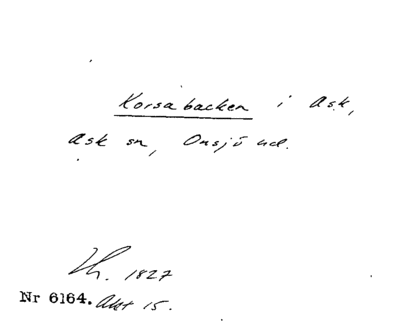 Korsabacken i Ask,
Ask sn, Onsjö hd.
Lh. 1827
Nr 6164. Akt 15.